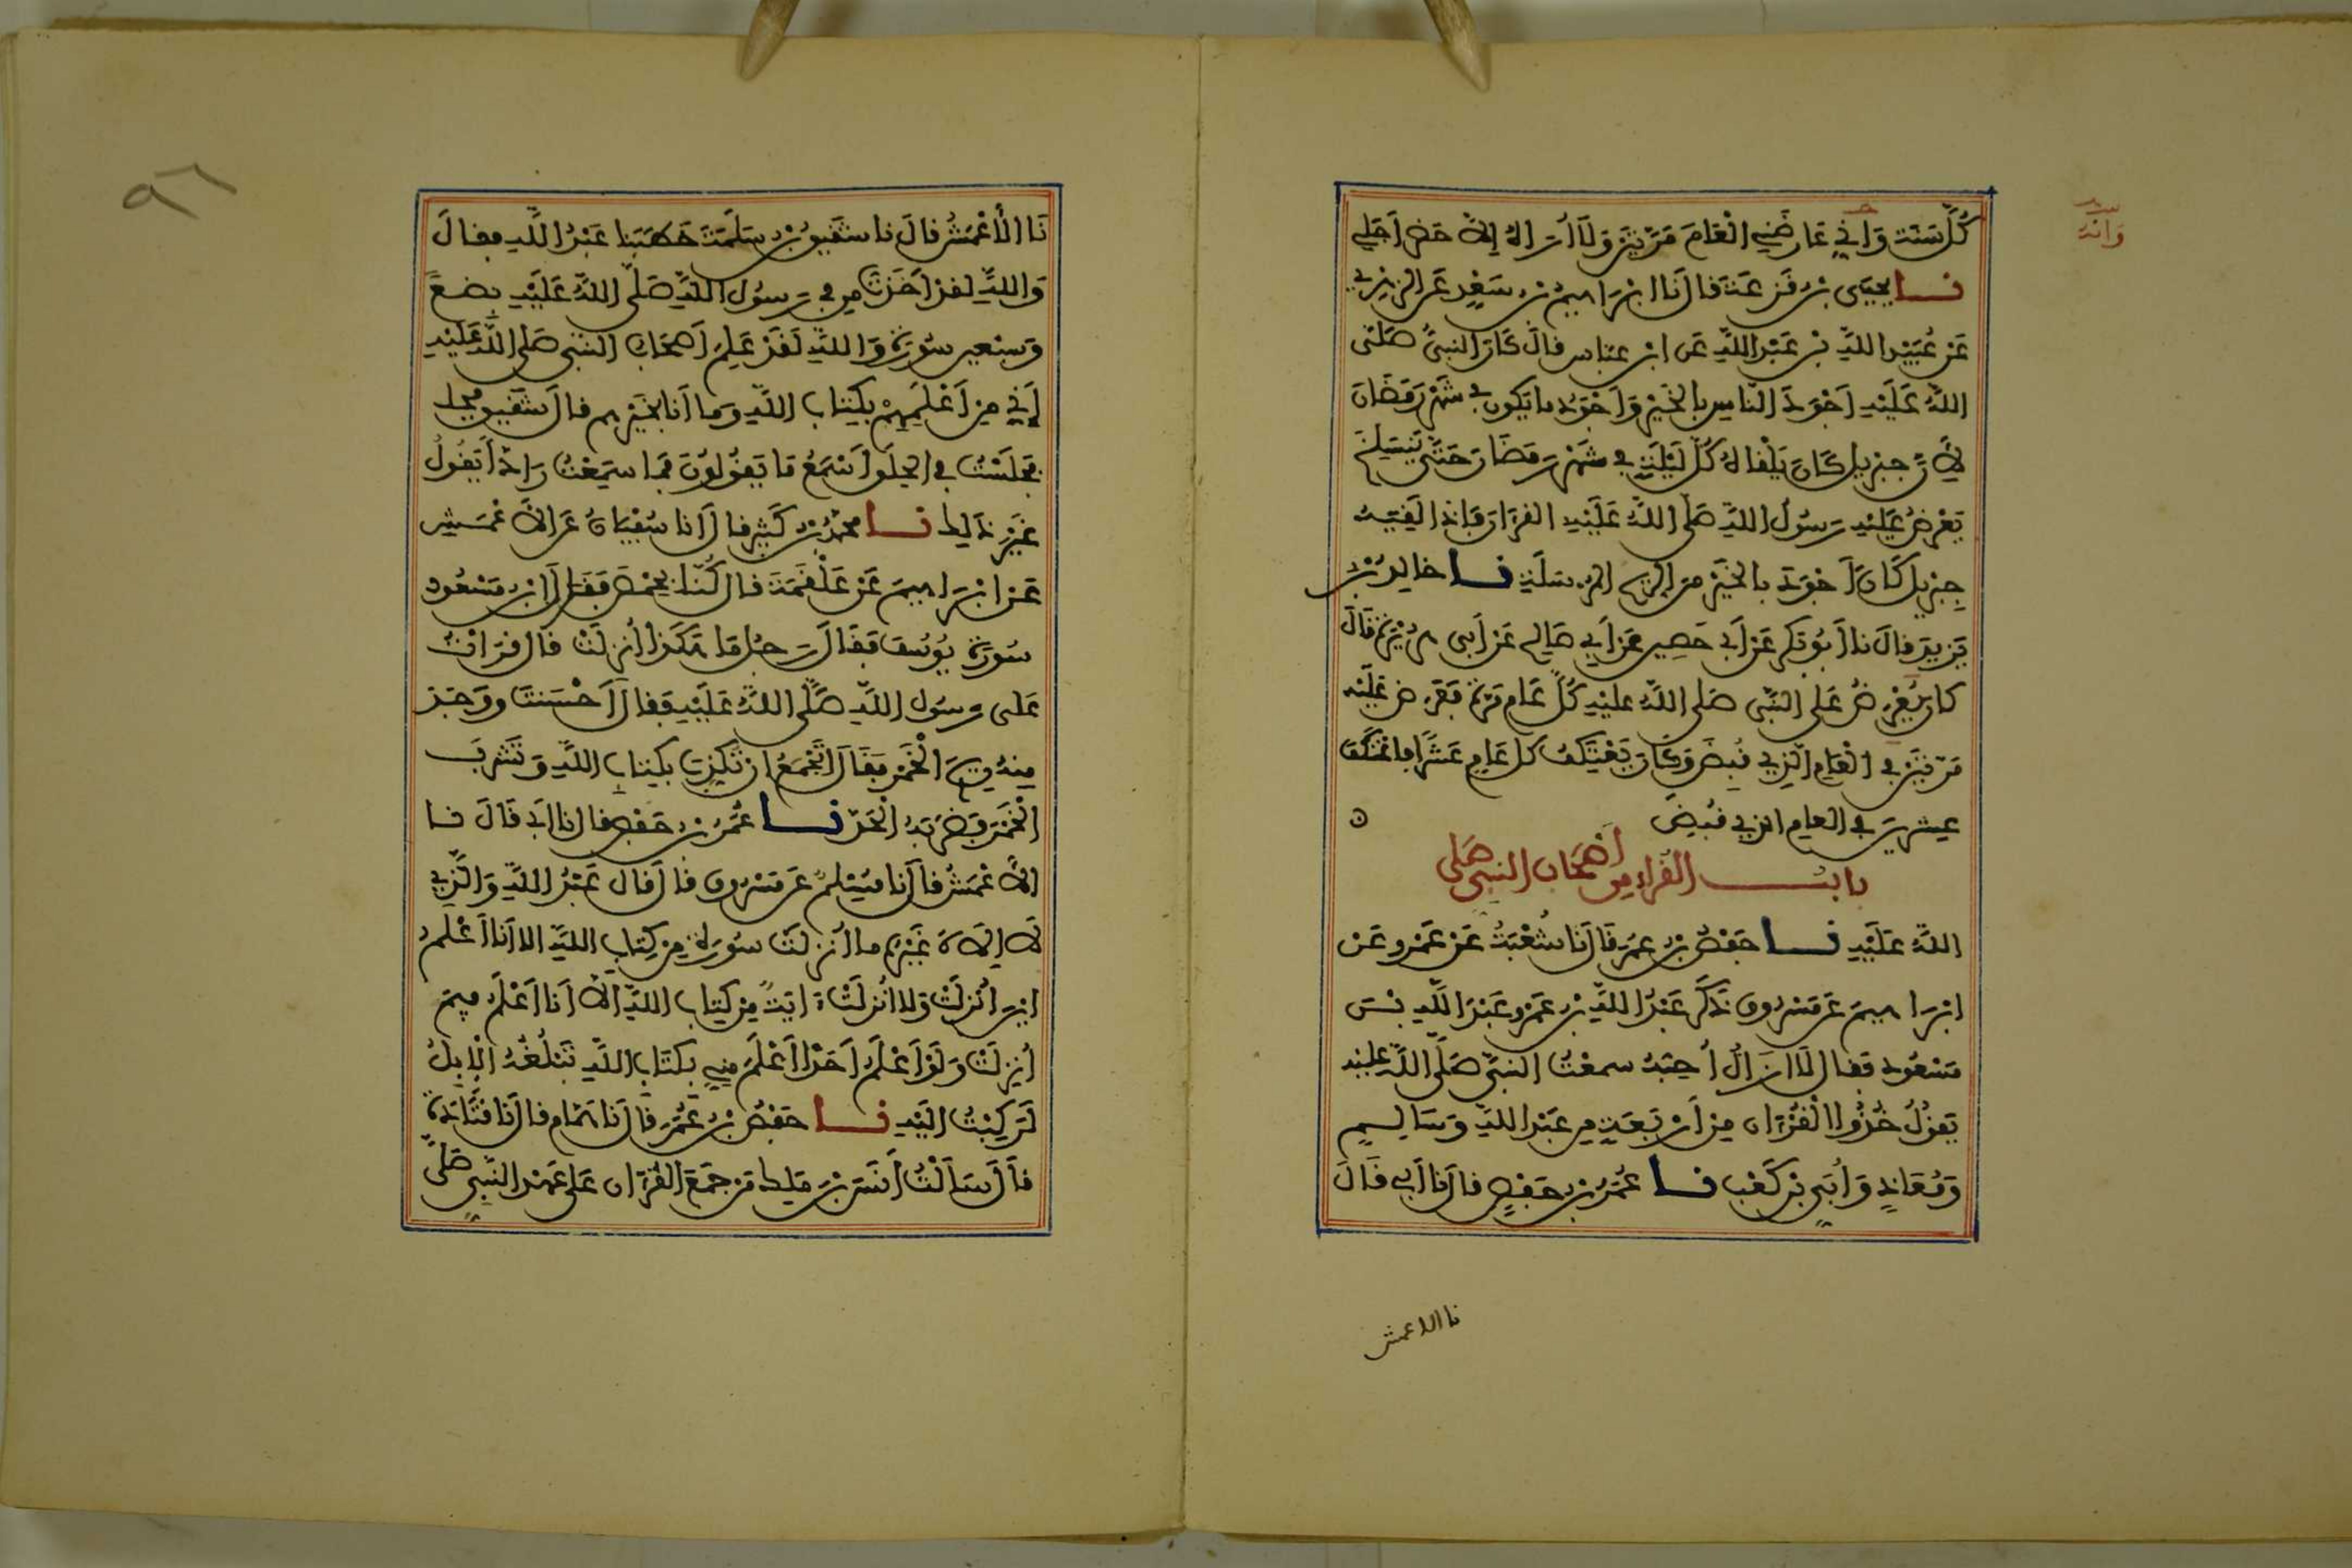 كُلَّ سَنَة وَانِّي عَارَضَنِي الْعَامَ مَرَّتَيْنِ وَلَا أُرَاهُ إلاَّ حَضَرَ أَجَلِي
وانه
نا يحيى بْن قَزَعَةَ قَالَ نَا ابْرَاهِيمُ بْن سَعْدٍ عَن الزهْرِي
عَنْ عُبَيْدِ اللَّهِ بْن عَبْدِ اللَّهِ عَن ابْن عبَّاس قال كَانَ النبيُّ صَلَّى
اللَّهُ عَلَيْهِ أَجْوَدَ النَّاسِ بالْخَيْرِ وَأَجْوَدُ ما يَكُون في شَهْرِ رَمَضَانَ
لأَنَّ جبْرِيل كَانَ يَلْقَاهُ كُلَّ لَيْلَةٍ في شَهْرِ رَمَضَانَ حَتَّى يَنْسَلِخَ
يَعْرِضُ عَلَيْهِ رَسُولُ اللَّهِ صَلَّى اللَّهُ عَلَيْهِ القرْآنَ فَإِذَا لَقِيَهُ
جِبْرِيل كَانَ أَجْوَدَ بالخَيْرِ مِنَ الرِّيحِ المُرْسَلَةِ نا خالِدُ بْن
يَزِيدَ قالَ نا أَبُو بَكْرٍ عَنْ أَبِي حَصِينٍ عَنْ أَبِي صَالِحٍ عَنْ أَبِي هُرَيْرَةَ قَالَ
كانَ يُعْرَضُ عَلَى النَّبِي صَلى اللَّهُ عليْهِ كُلَّ عَامٍ مَرَّةً فَعَرَضَ عَلَيْهِ
مَرَّتَيْنِ في الْعَامِ الَّذِي قُبِضَ وَكَانَ يَعْتَكِفُ كل عَامٍ عَشْرًا فاعْتَكَفَ
عِشْرِينَ في العام الذِي قُبِضَ ه
بابُ القُرَّاءِ مِن أَصْحَابِ النبي صَلى
اللَّهُ عَلَيْهِ نا حَفْصُ بْن عمَرَ قَالَ نَا شُعْبَةُ عَنْ عَمْرٍو عَنْ
ابْرَاهِيمَ عَن مَسْرُوقٍ ذَكَرَ عَبْدُ اللَّهِ بْن عَمْرٍو عَبْدَ اللَّهِ بْنَ
مَسْعُودٍ فَقال لَا ازَالُ أُحِبُّهُ سمعْتُ النبيَّ صَلَّى اللَّهُ عليْهِ
يَقُولُ خُذُوا الْقُرْآنَ مِنْ أَرْبَعَةٍ مِن عَبْدِ اللَّهِ وَسَالِمٍ
وَمُعَاذٍ وَأُبَيِّ بْن كَعْبٍ نا عُمَرُ بْن حَفْصٍ قالَ نَا أَبِي قَالَ
نا الاعمش
نَا الْأَعْمَشُ قالَ نا شَقِيقُ بْن سَلَمَةَ خَطَبَنا عَبْدُ اللَّهِ فقالَ
وَاللَّهِ لقدْ أَخَذْتُ مِن في رَسُول اللَّهِ صَلَّى اللَّهُ عَلَيْهِ بِضْعًا
وَسَبْعِين سُورَةً وَاللَّهِ لَقَدْ عَلِمَ أَصْحَابُ النَّبِي صَلى اللَّه عَلَيْهِ
إَنِّي مِنْ أَعْلَمِهِمْ بِكِتَابِ اللَّهِ وَمَا أَنا بِخَيْرِهِم قالَ شَقِيق
فَجَلَسْتُ في الحِلَقِ أَسْمَعُ مَا يَقُولُونَ فَمَا سَمِعْتُ رَادًّا يَقُولُ
غَيْرَ ذَلِكَ نا محمّدُ بْن كَثِيرٍ قالَ انا سُفْيَانُ عَن الأَعْمَشِ
عَنْ ابْرَاهِيمَ عَنْ عَلْقَمَةَ قالَ كُنَّا بِحِمْصَ فَقَرَأَ ابْن مَسْعُودٍ
سُورَةَ يُوسُفَ فَقَالَ رَجُلٌ مَا هَكَذَا أُنْزِلَتْ قالَ قَرَأْتُ
عَلَى رسُولِ اللَّهِ صَلَّى اللَّهُ عَلَيْهِ فَقالَ أَحْسَنْتَ وَوَجَدَ
مِنْهُ رِيحَ الْخَمْرِ فقَالَ أَتَجْمَعُ أَنْ تُكَذِّبَ بِكِتَابِ اللَّهِ وَتَشْرَبَ
الْخَمْرَ فَضَرَبَهُ الْحَدَّ نا عُمَرُ بْن حَفْصٍ قالَ نا أَبِي قَالَ نا
الأَعْمَشُ قالَ نا مُسْلِمٌ عَن مَسْرُوقٍ قالَ قالَ عَبْدُ اللَّهِ وَالَّذِي
لَا إِلَاهَ غَيْرُهُ ما أُنْزِلَتْ سُورَةٌ مِنْ كِتَابِ اللَّهِ الا أَنَا أَعْلَمُ
أَيْنَ أُنْزِلَتْ وَلا أُنْزِلَتْ آيَةٌ مِنْ كِتَابِ اللَّهِ الاَّ أَنَا أَعْلَمُ فِيمَ
أُنْزِلَتْ وَلَوْ أَعْلَمُ أَحَدًا أَعْلَمَ مِنِّي بِكِتَابِ اللَّهِ تَبْلُغُهُ الْإِبِلُ
لَرَكِبْتُ إِلَيْهِ نا حَفْصُ بْنُ عُمَرَ قالَ نَا هَمَّام قالَ نَا قَتَادَةُ
قَالَ سَأَلْتُ أَنَسَ بْنَ مَلِك مَنْ جَمَعَ الْقُرْآنَ عَلَى عَهْدِ النَّبِي صَلَّى